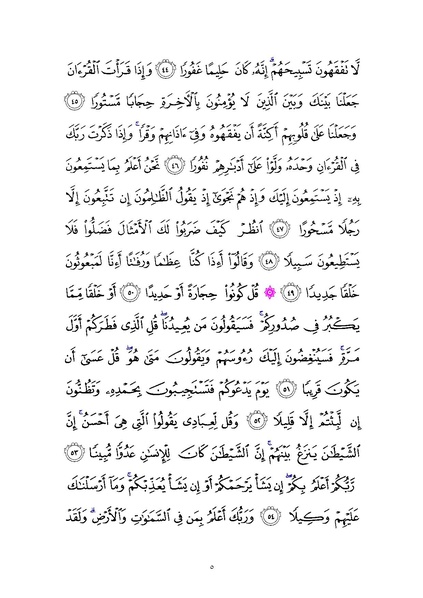 لَّا تَفْقَهُونَ تَسْبِيحَهُمْ ۗ إِنَّهُۥ كَانَ حَلِيمًا غَفُورًا ٤٤ وَإِذَا قَرَأْتَ ٱلْقُرْءَانَ
جَعَلْنَا بَيْنَكَ وَبَيْنَ ٱلَّذِينَ لَا يُؤْمِنُونَ بِٱلْأَخِرَةِ حِجَابًا مَّسْتُورًا ٤٥
وَجَعَلْنَا عَلَىٰ قُلُوبِهِمْ أَكِنَّةً أَن يَفْقَهُوهُ وَفِىٓ ءَاذَانِهِمْ وَقْرًا ۚ وَإِذَا ذَكَرْتَ رَبَّكَ
فِى ٱلْقُرْءَانِ وَحْدَهُۥ وَلَّوْا۟ عَلَىٰٓ أَدْبَـٰرِهِمْ نُفُورًا ٤٦ نَّحْنُ أَعْلَمُ بِمَا يَسْتَمِعُونَ
بِهِۦٓ إِذْ يَسْتَمِعُونَ إِلَيْكَ وَإِذْ هُمْ نَجْوَىٰٓ إِذْ يَقُولُ ٱلظَّـٰلِمُونَ إِن تَتَّبِعُونَ إِلَّا
رَجُلًا مَّسْحُورًا ٤٧ ٱنظُرْ كَيْفَ ضَرَبُوا۟ لَكَ ٱلْأَمْثَالَ فَضَلُّوا۟ فَلَا
يَسْتَطِيعُونَ سَبِيلًا ٤٨ وَقَالُوٓا۟ أَءِذَا كُنَّا عِظَـٰمًا وَرُفَـٰتًا أَءِنَّا لَمَبْعُوثُونَ
خَلْقًا جَدِيدًا ٤٩ ۞ قُلْ كُونُوا۟ حِجَارَةً أَوْ حَدِيدًا ٥٠ أَوْ خَلْقًا مِّمَّا
يَكْبُرُ فِى صُدُورِكُمْ ۚ فَسَيَقُولُونَ مَن يُعِيدُنَا ۖ قُلِ ٱلَّذِى فَطَرَكُمْ أَوَّلَ
مَرَّةٍ ۚ فَسَيُنْغِضُونَ إِلَيْكَ رُءُوسَهُمْ وَيَقُولُونَ مَتَىٰ هُوَ ۖ قُلْ عَسَىٰٓ أَن
يَكُونَ قَرِيبًا ٥١ يَوْمَ يَدْعُوكُمْ فَتَسْتَجِيبُونَ بِحَمْدِهِۦ وَتَظُنُّونَ
إِن لَّبِثْتُمْ إِلَّا قَلِيلًا ٥٢ وَقُل لِّعِبَادِى يَقُولُوا۟ ٱلَّتِى هِىَ أَحْسَنُ ۚ إِنَّ
ٱلشَّيْطَـٰنَ يَنزَغُ بَيْنَهُمْ ۚ إِنَّ ٱلشَّيْطَـٰنَ كَانَ لِلْإِنسَـٰنِ عَدُوًّا مُّبِينًا ٥٣
رَّبُّكُمْ أَعْلَمُ بِكُمْ ۖ إِن يَشَأْ يَرْحَمْكُمْ أَوْ إِن يَشَأْ يُعَذِّبْكُمْ ۚ وَمَآ أَرْسَلْنَـٰكَ
عَلَيْهِمْ وَكِيلًا ٥٤ وَرَبُّكَ أَعْلَمُ بِمَن فِى ٱلسَّمَـٰوَٰتِ وَٱلْأَرْضِ ۗ وَلَقَدْ
٥